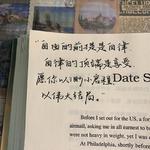 "自由的前提是自律
自律的顶端是享受
愿你以渺小启程
以伟大结局。"
Date S
Before I set out for the US, a for
airmail, asking me in all earnest to b
were not heavy in weight, yet I was a
At Philadelphia, shortly befor